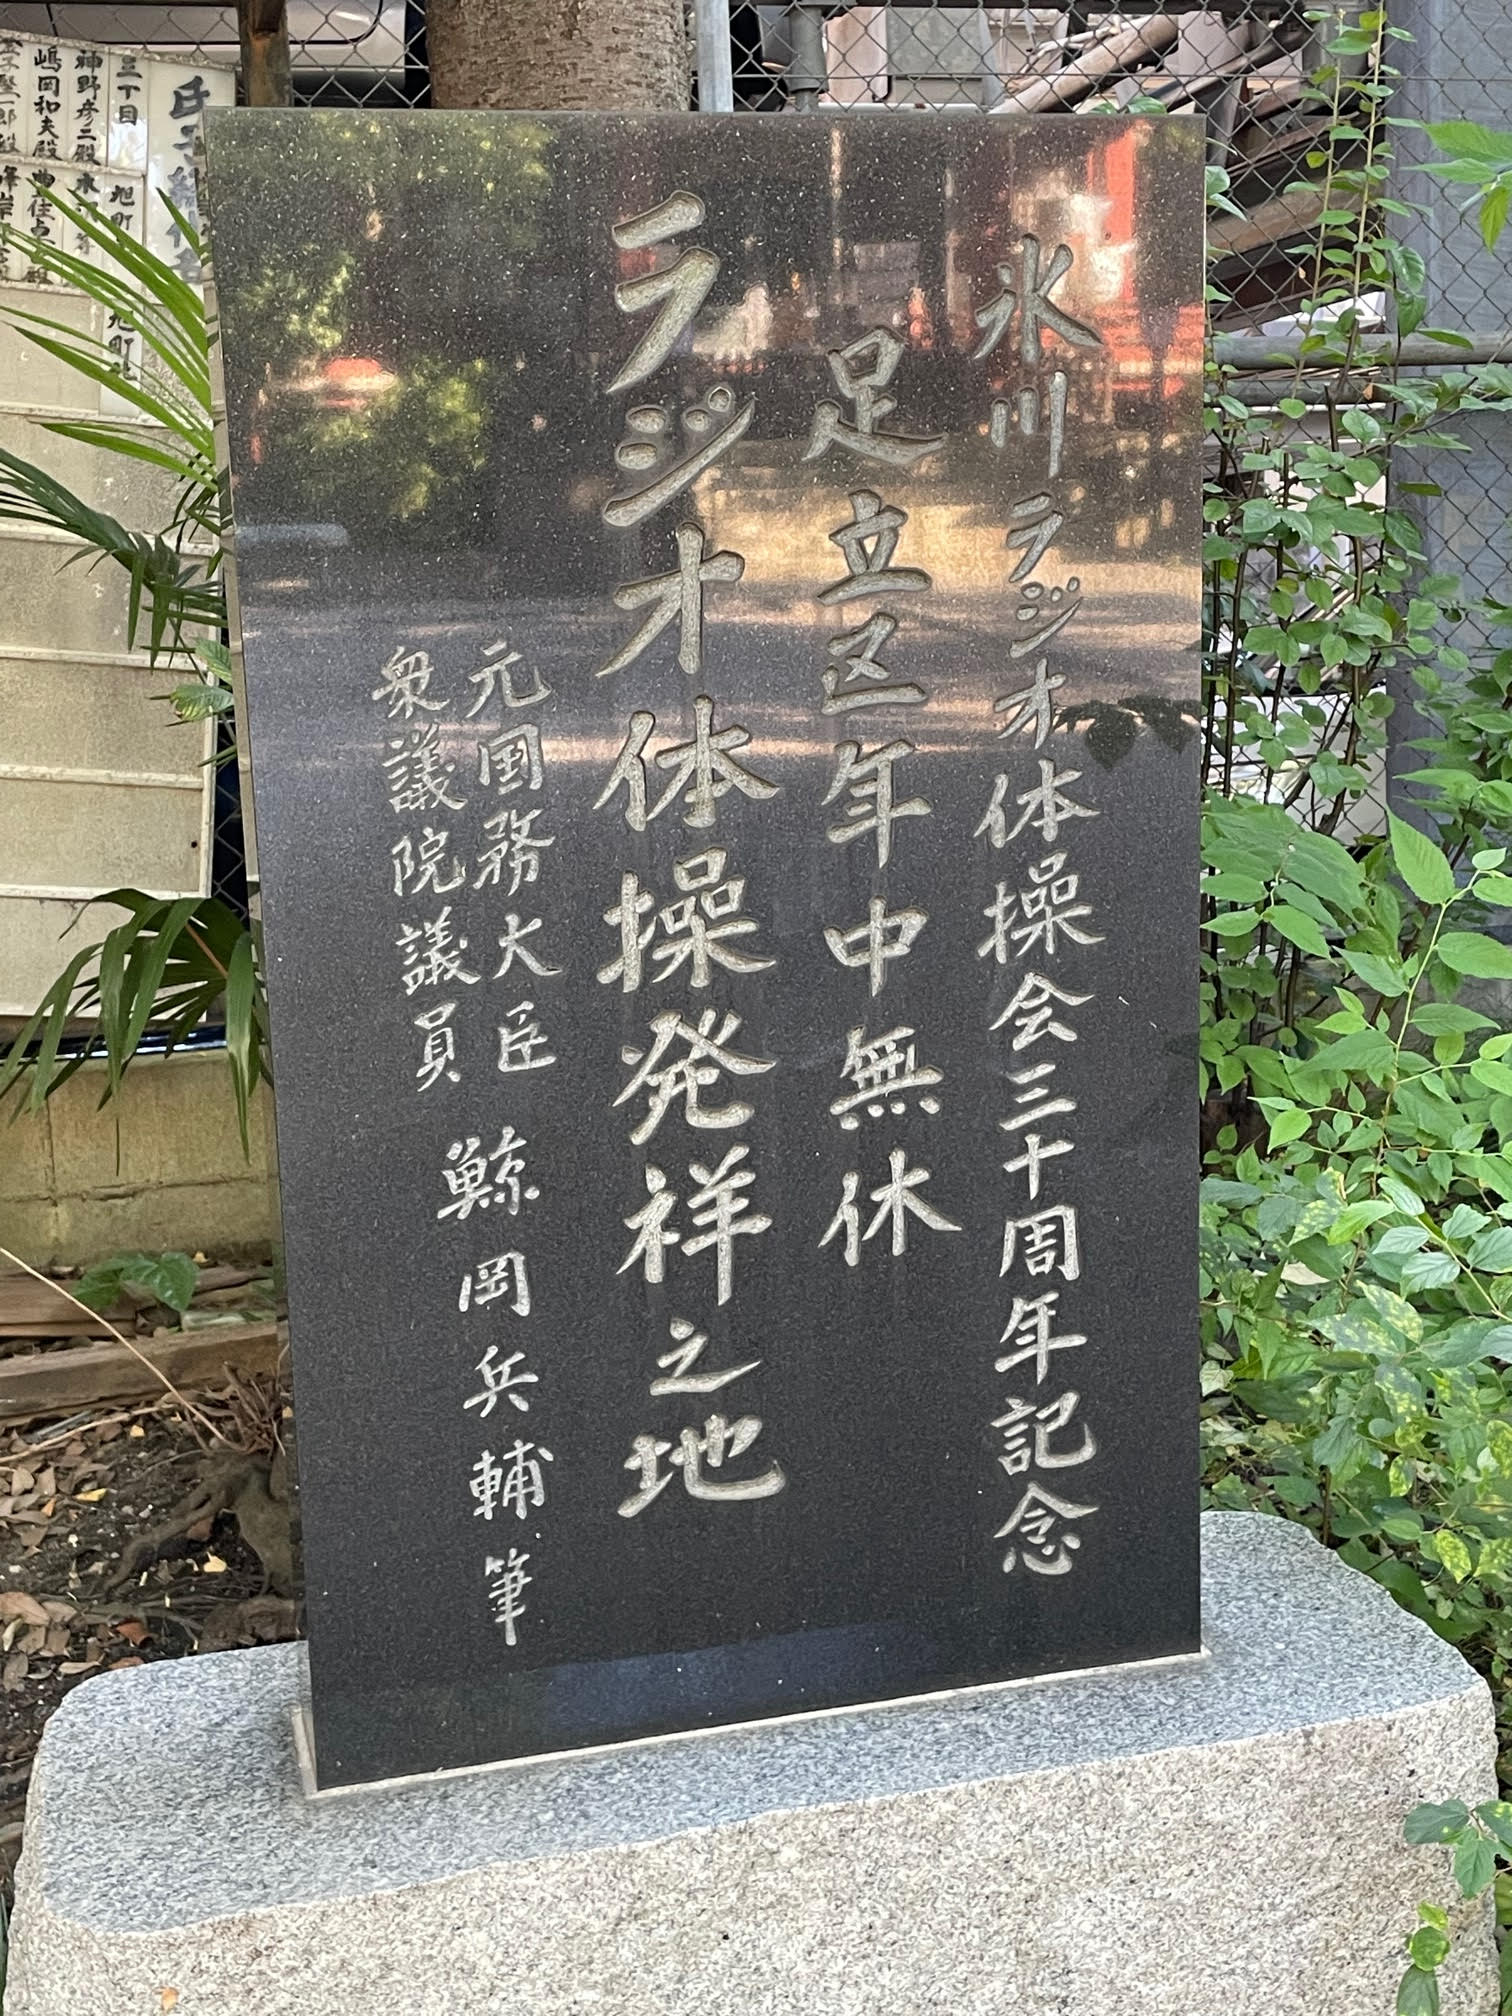 氷川ラジオ体操会三十周年記念
足立区年中無休
ラジオ体操発祥之地
元国務大臣
衆議院議員
鯨岡兵輔筆
三丁目
神野彦二殿
嶋岡和夫殿
旭町